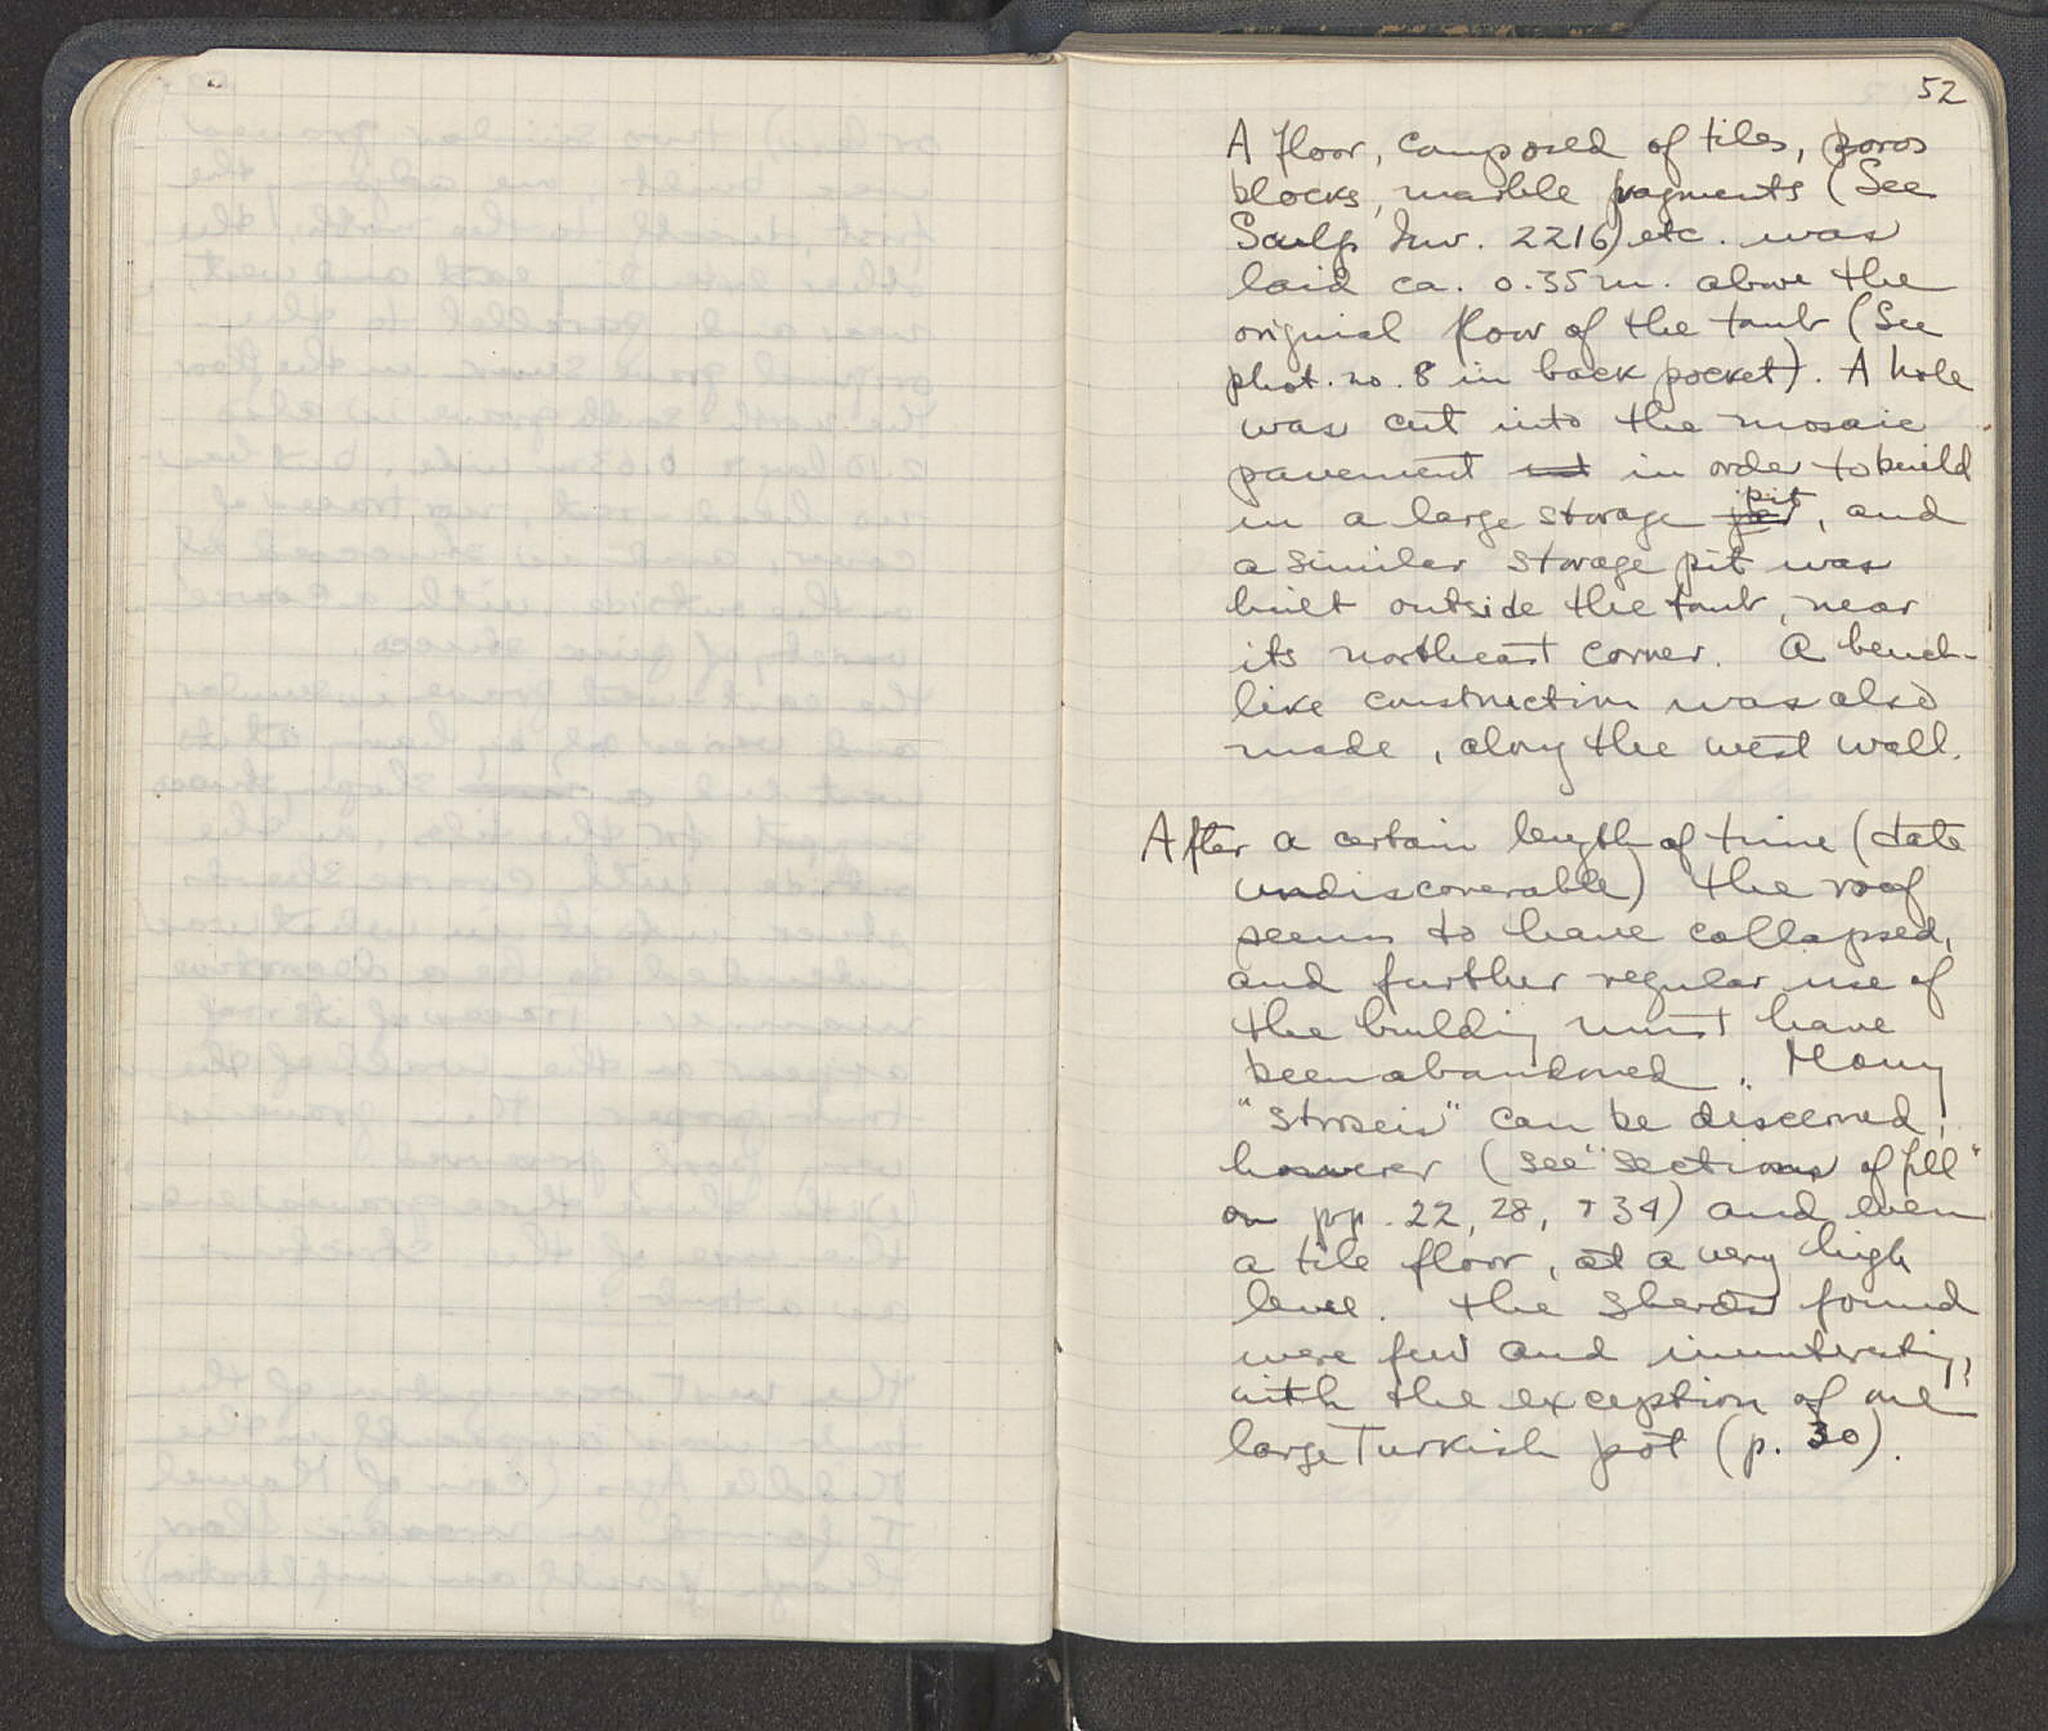 52
A floor, composed of tiles, poros
blocks, marble fragments (See
Sculp Inv. 2216) etc. was
laid ca. 0.35 m. above the
original floor of the tomb (See
phot. no. 8 in back pocket). A hole
was cut into the mosaic
pavement in order to build
in a large storage pit, and
a similar storage pit was
built outside the tomb, near
its northeast corner. A bench-
like construction was also
made, along the west wall.
After a certain length of time (date
undiscoverable) the roof
seems to have collapsed,
and further regular use of
the building must have
been abandoned. Many
"stroseis" can be discerned,
however (see "sections of fill"
on pp. 22, 28, + 34) and even
a tile floor, at a very high
level. The sherds found
were few and uninteresting,
with the exception of one
large Turkish pot (p. 30).